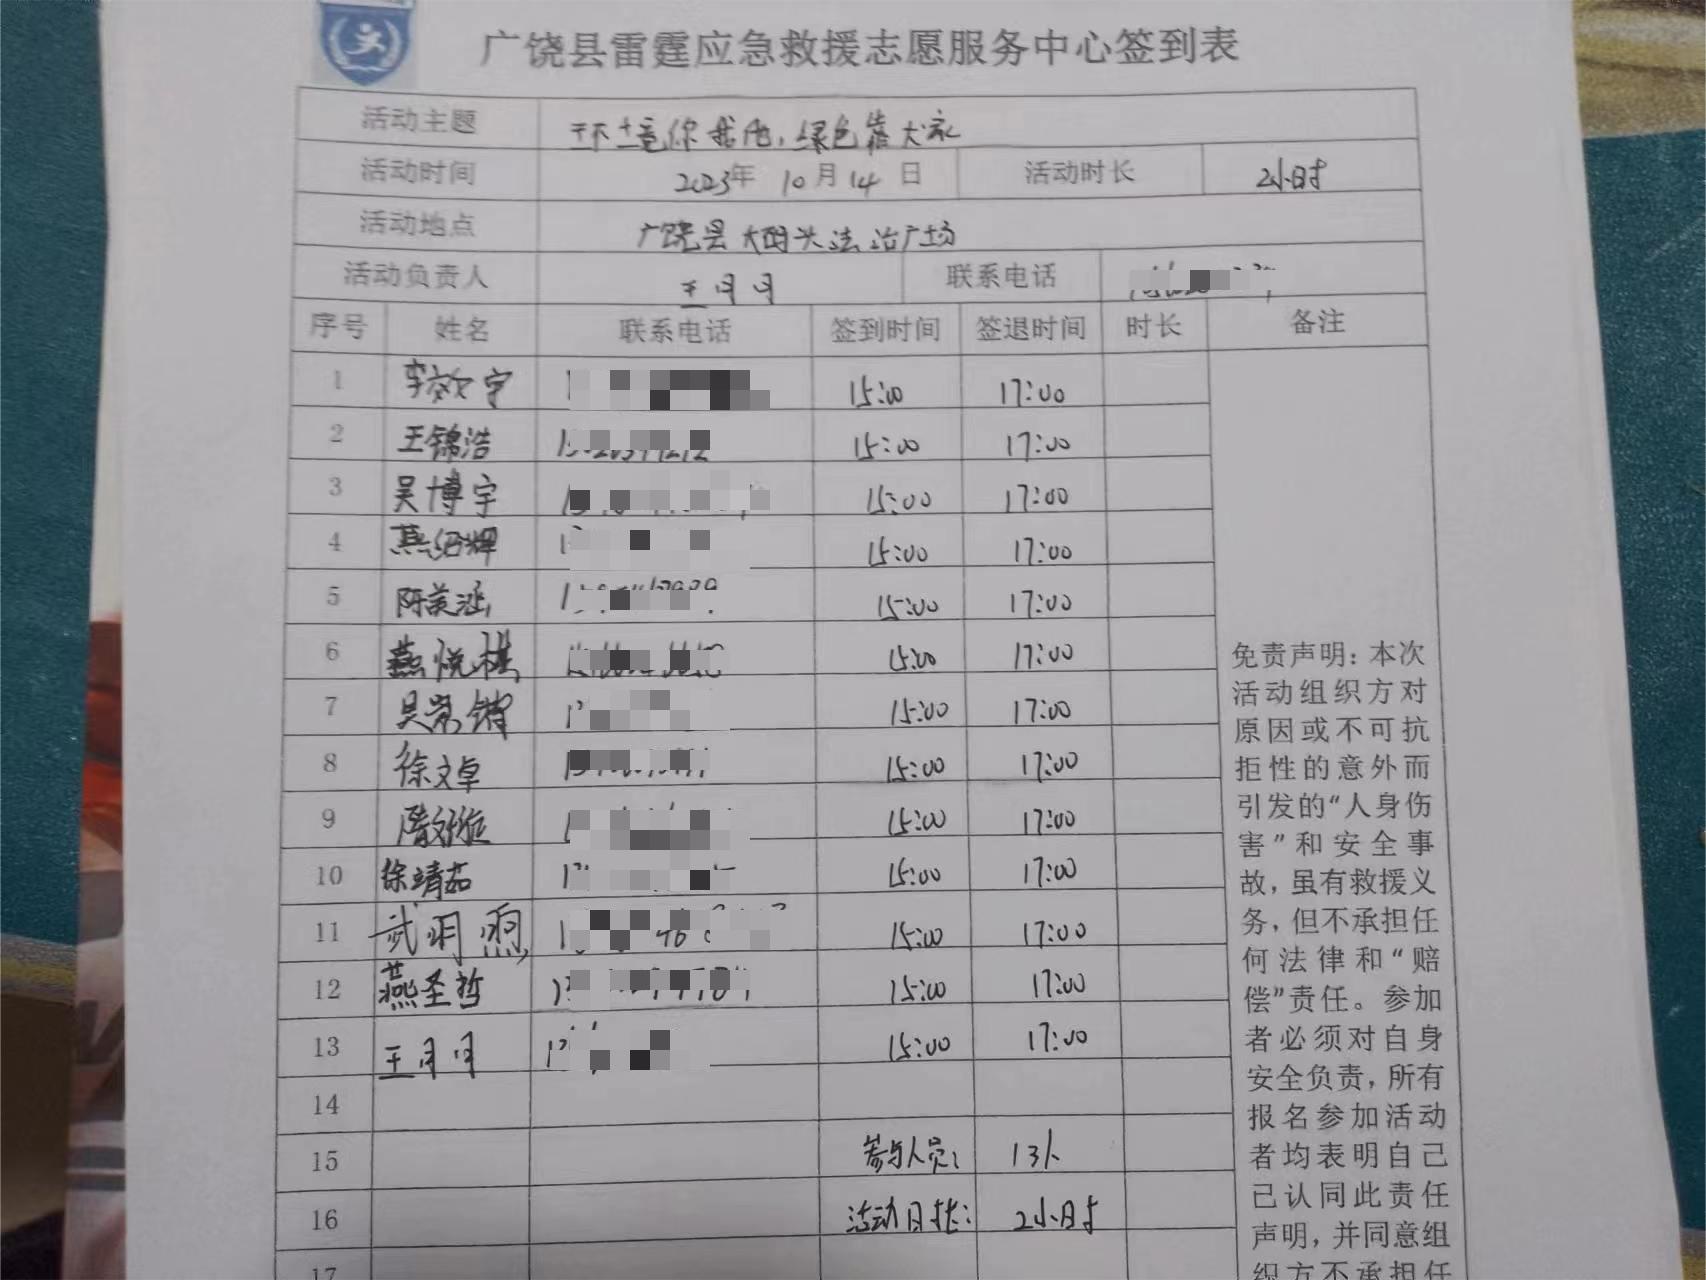 广饶县雷霆应急救援志愿服务中心签到表
活动主题 环境你我他，绿色靠大家
活动时间 2023年 10月 14日 活动时长 2小时
活动地点 广饶县大码头法治广场
活动负责人 王月月 联系电话
序号 姓名 联系电话 签到时间 签退时间 时长 备注
1 李效宇 15:00 17:00
2 王锦浩 15:00 17:00
3 吴博宇 15:00 17:00
4 燕绍辉 15:00 17:00
5 陈美涵 15:00 17:00
6 燕悦棋 15:00 17:00
7 15:00 17:00
8 徐文卓 15:00 17:00
9 15:00 17:00
10 徐靖茹 15:00 17:00
11 武明煦 15:00 17:00
12 燕圣哲 15:00 17:00
13 王月月 15:00 17:00
14
15 参与人员: 13人
16 活动时长: 2小时
17
免责声明：本次
活动组织方对
原因或不可抗
拒性的意外而
引发的“人身伤
害”和安全事
故，虽有救援义
务，但不承担任
何法律和“赔
偿”责任。参加
者必须对自身
安全负责，所有
报名参加活动
者均表明自己
已认同此责任
声明，并同意组
织方不承担任